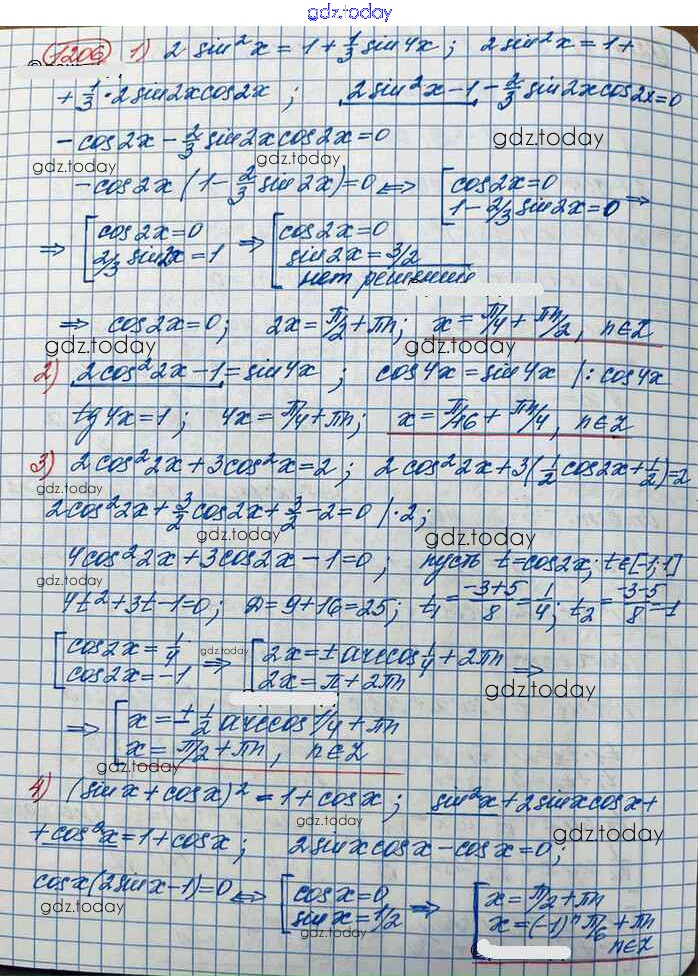 gdz.today
1206 1) 2 sin²x = 1 + 1/3 sin4x ; 2sin²x = 1 +
+ 1/3 · 2 sin2x cos2x ; 2 sin²x − 1 − 2/3 sin2x cos2x = 0
gdz.today
− cos2x − 2/3 sin2x cos2x = 0
gdz.today gdz.today
− cos2x (1 − 2/3 sin2x) = 0 ⇔ [ cos2x = 0
1 − 2/3 sin2x = 0 ⇒
⇒ [ cos2x = 0 ⇒ [ cos2x = 0
2/3 sin2x = 1 sin2x = 3/2
нет решений
⇒ cos2x = 0 ; 2x = π/2 + πn ; x = π/4 + πn/2 , n∈Z
gdz.today gdz.today
2) 2cos²2x − 1 = sin4x ; cos4x = sin4x | : cos4x
tg4x = 1 ; 4x = π/4 + πn ; x = π/16 + πn/4 , n∈Z
3) 2cos²2x + 3cos²x = 2 ; 2cos²2x + 3(1/2 cos2x + 1/2) = 2
gdz.today gdz.today
2cos²2x + 3/2 cos2x + 3/2 − 2 = 0 | · 2 ;
gdz.today gdz.today
4cos²2x + 3cos2x − 1 = 0 ; пусть t = cos2x ; t∈[-1;1]
gdz.today gdz.today
4t² + 3t − 1 = 0 ; D = 9 + 16 = 25 ; t₁ = −3+5/8 = 1/4 ; t₂ = −3−5/8 = −1
gdz.today
[ cos2x = 1/4 ⇒ [ 2x = ± arccos 1/4 + 2πn ⇒
cos2x = −1 2x = π + 2πn
gdz.today gdz.today
⇒ [ x = ± 1/2 arccos 1/4 + πn
x = π/2 + πn , n∈Z
gdz.today
4) (sinx + cosx)² = 1 + cosx ; sin²x + 2sinx cosx +
gdz.today gdz.today
+ cos²x = 1 + cosx ; 2 sinx cosx − cosx = 0 ;
cosx (2 sinx − 1) = 0 ⇔ [ cosx = 0 ⇒ [ x = π/2 + πn
sinx = 1/2 x = (−1)ⁿ π/6 + πn
n∈Z
gdz.today gdz.today gdz.today